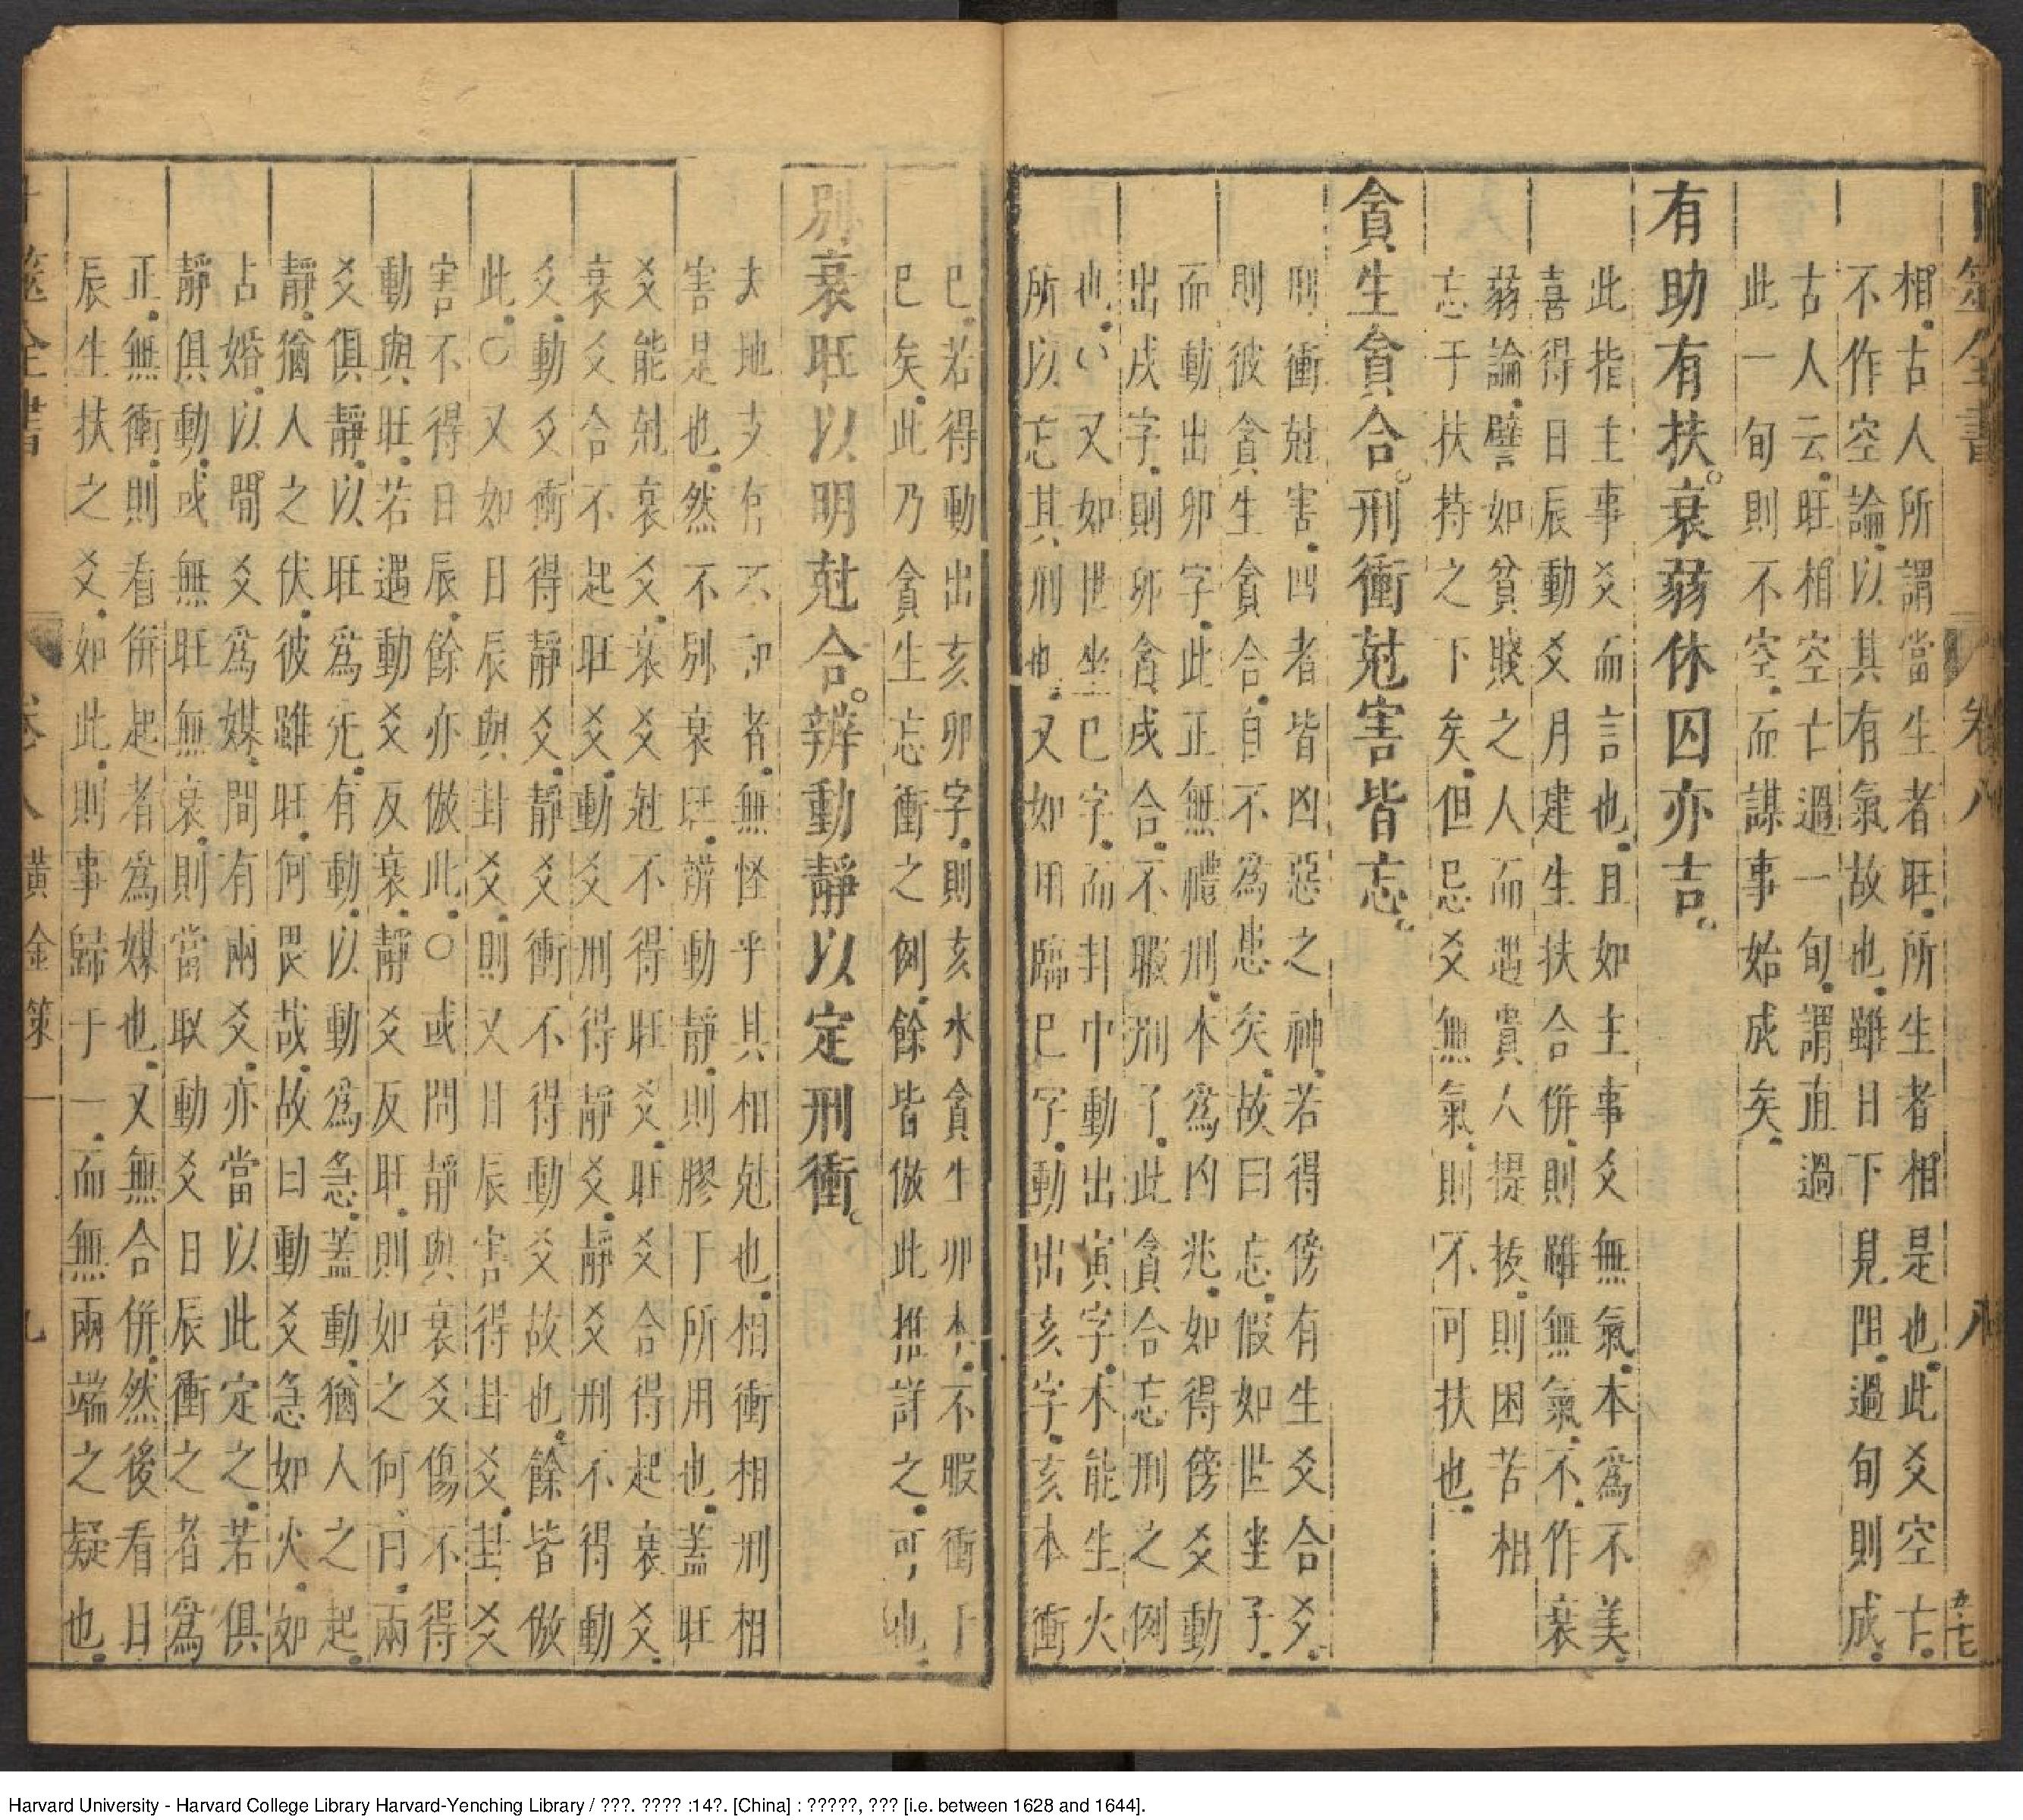 卜筮全書 卷八 八 五十七
相古人所謂當生者旺所生者相是也此爻空亡
不作空論以其有氣故也雖日下見阻過旬則成
古人云旺相空亡過一旬謂直過
此一旬則不空而謀事始成矣
有助有扶衰弱休囚亦吉
此指主事爻而言也且如主事爻無氣本為不美
喜得日辰動爻月建生扶合併則雖無氣不作衰
弱論譬如貧賤之人而遇貴人提拔則困苦相
忘于扶持之下矣但忌爻無氣則不可扶也
貪生貪合刑衝尅害皆忘
刑衝尅害四者皆凶惡之神若得傍有生爻合爻
則彼貪生貪合自不為患矣故曰忘假如世坐子
而動出卯字此正無禮刑本為凶兆如得傍爻動
出戌字則卯貪戌合不暇刑子此貪合忘刑之例
也○又如世坐巳字而卦中動出寅字木能生火
所以忘其刑也又如用臨巳字動出亥字亥本衝
巳若得動出亥卯字則亥水貪生卯木不暇衝于
巳矣此乃貪生忘衝之例餘皆倣此推詳之可也
別衰旺以明尅合辨動靜以定刑衝
夫地支有不和者無怪乎其相尅也相衝相刑相
害是也然不別衰旺辨動靜則膠于所用也蓋旺
爻能尅衰爻衰爻尅不得旺爻旺爻合得起衰爻
衰爻合不起旺爻動爻刑得靜爻靜爻刑不得動
爻動爻衝得靜爻靜爻衝不得動爻故也餘皆倣
此○又如日辰與卦爻則又日辰害得卦爻卦爻
害不得日辰餘亦倣此○或問靜與衰爻傷不得
動與旺若遇動爻反衰靜爻反旺則如之何曰兩
爻俱靜以旺為先有動以動為急蓋動猶人之起
靜猶人之伏彼雖旺何畏哉故曰動爻急如火如
占婚以間爻為媒間有兩爻亦當以此定之若俱
靜俱動或無旺無衰則當取動爻日辰衝之者為
正無衝則看併起者為媒也又無合併然後看日
辰生扶之爻如此則事歸于一而無兩端之疑也
卜筮全書 卷八 黃金策一 九
Harvard University - Harvard College Library Harvard-Yenching Library / ???. ???? :14?. [China] : ?????, ??? [i.e. between 1628 and 1644].